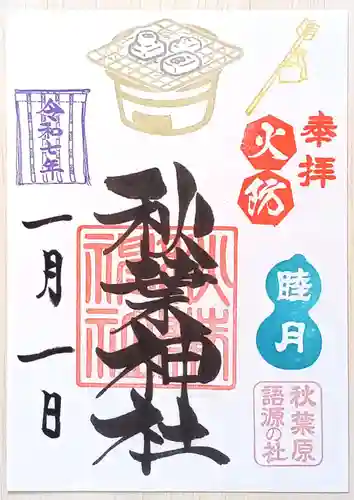 奉拝
火防
睦月
秋葉原
語源の社
秋葉神社
秋葉神社
令和七年
一月一日